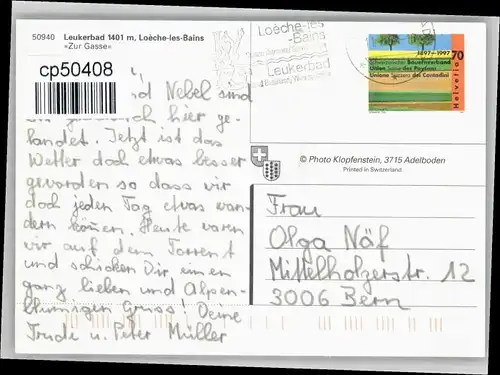 50940 Leukerbad 1401 m, Loèche-les-Bains
»Zur Gasse«
cp50408
Nebel sind
hier ge-
landet. Jetzt ist das
Wetter doch etwas besser
geworden so dass wir
doch jeden Tag etwas wan-
dern können. Heute waren
wir auf dem Torrent
und schicken Dir einen
ganz lieben und Alpen-
blumigen Gruss! Deine
Trude u. Peter Müller
Loèche-les-
-Bains
Leukerbad
1897-1997
70
Schweizerischer Bauernverband
Union Suisse des Paysans
Unione Svizzera dei Contadini
Helvetia
© Photo Klopfenstein, 3715 Adelboden
Printed in Switzerland
Frau
Olga Näf
Mittelholzerstr. 12
3006 Bern